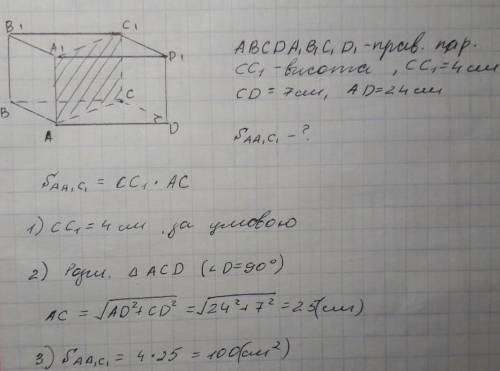 B₁ C₁
A₁ D₁
B C
A D
ABCDA₁B₁C₁D₁ - прав. пар.
CC₁ - висота, CC₁ = 4 см
CD = 7 см, AD = 24 см
S_AA₁C₁ - ?
S_AA₁C₁ = CC₁ · AC
1) CC₁ = 4 см, за умовою
2) Розгл. △ ACD (∠D=90°)
AC = √AD²+CD² = √24²+7² = 25(см)
3) S_AA₁C₁ = 4·25 = 100(см²)